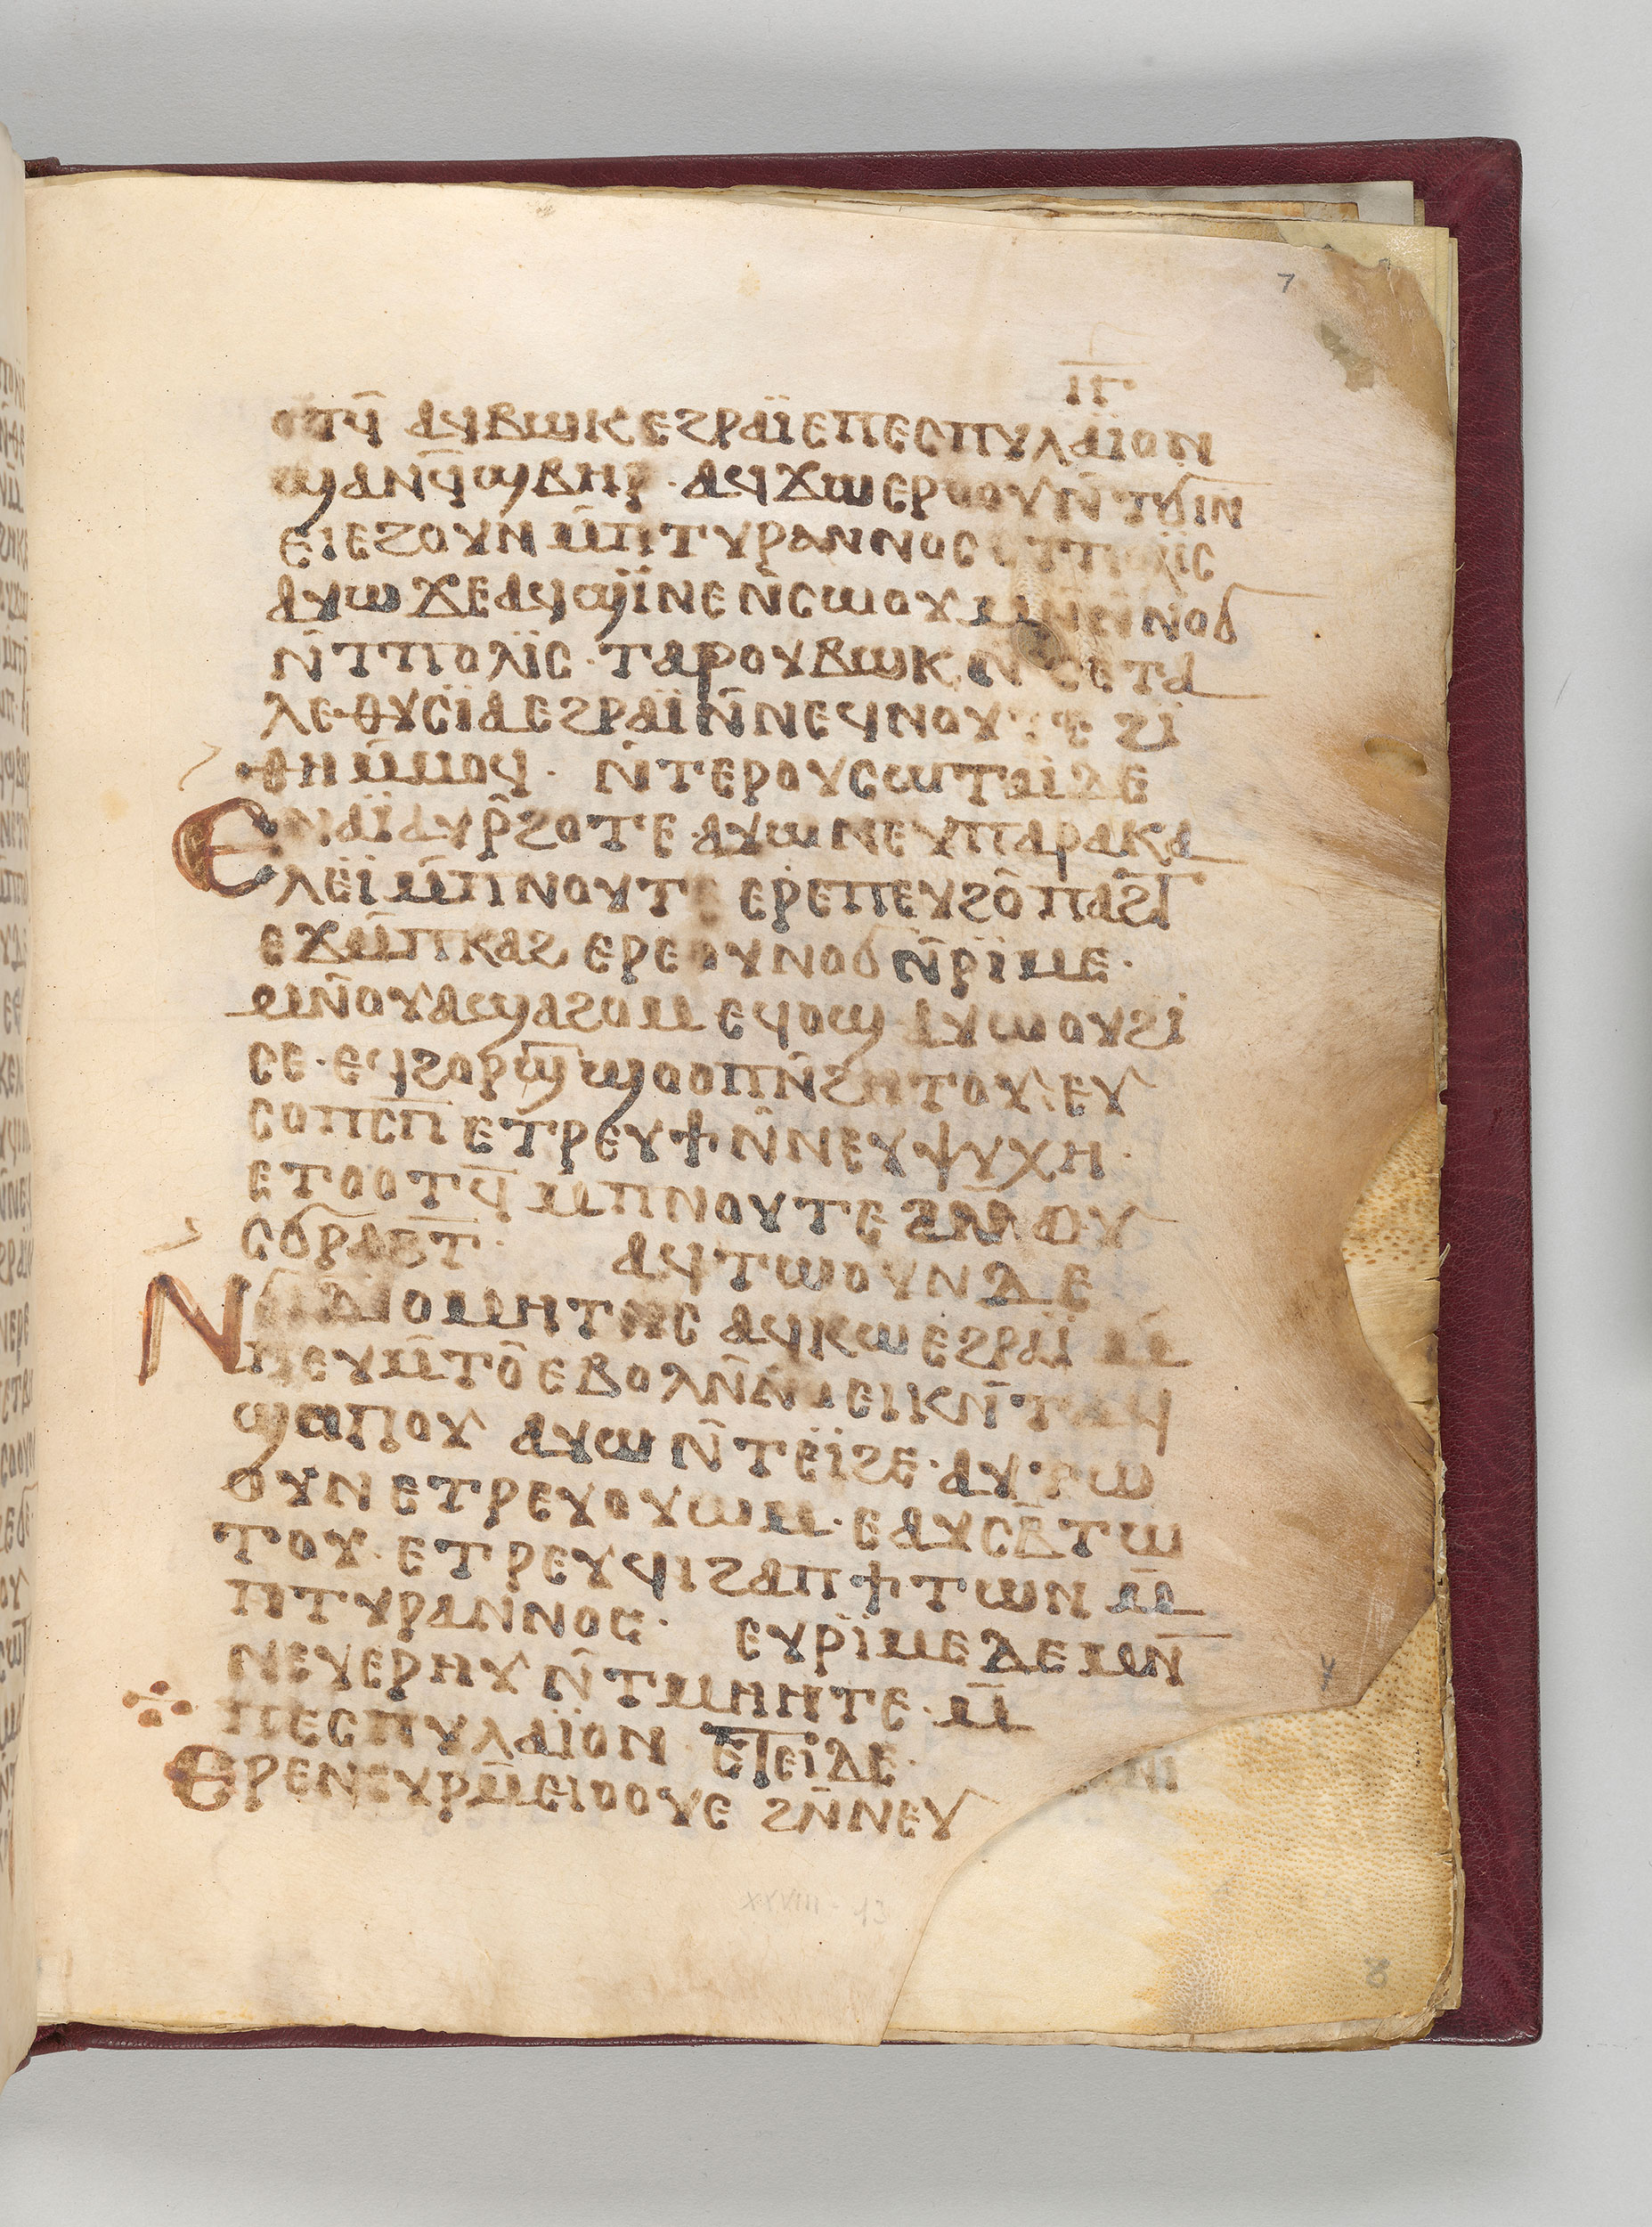 7
ⲓⲅ
ⲟⲟⲧϥ̄ ⲁϥⲃⲱⲕ ⲉϩⲣⲁⲓ̈ ⲉⲡⲉⲥⲡⲩⲗⲁⲓ̈ⲟⲛ
ϣⲁⲛϥ̄ϣⲃⲏⲣ · ⲁϥϫⲱ ⲉⲣⲟⲟⲩ ⲛ̄ⲧϭⲓⲛ
ⲉⲓ ⲉϩⲟⲩⲛ ⲙ̄ⲡⲧⲩⲣⲁⲛⲛⲟⲥ ⲉⲧⲡⲟⲗⲓ̈ⲥ
ⲁⲩⲱ ϫⲉ ⲁϥϣⲓ̈ⲛⲉ ⲛ̄ⲥⲱⲟⲩ ⲙⲛ̄ⲛ̄ⲛⲟϭ
ⲛ̄ⲧⲡⲟⲗⲓ̈ⲥ · ⲧⲁⲣⲟⲩⲃⲱⲕ ⲛ̄ⲥⲉⲧⲁ
ⲗⲉ ⲑⲩⲥⲓ̈ⲁ ⲉϩⲣⲁⲓ̈ ⲛ̄ⲛⲉϥⲛⲟⲩⲧⲉ ϩⲓ̈
ⲑⲏ ⲙ̄ⲙⲟϥ · ⲛ̄ⲧⲉⲣⲟⲩⲥⲱⲧⲙ̄ ⲇⲉ
ⲉⲛⲁⲓ̈ ⲁⲩⲣ̄ϩⲟⲧⲉ · ⲁⲩⲱ ⲛⲉⲩⲡⲁⲣⲁⲕⲁ
ⲗⲉⲓ̈ ⲙ̄ⲡⲛⲟⲩⲧⲉ ⲉⲣⲉⲡⲉⲩϩⲟ̄ ⲡⲁϩⲧ̄
ⲉϫⲙ̄ⲡⲕⲁϩ ⲉⲣⲉⲟⲩⲛⲟϭ ⲛ̄ⲣⲓ̈ⲙⲉ ·
ⲙⲛ̄ⲟⲩⲁϣⲁϩⲟⲙ ⲉϥⲟϣ ⲁⲩⲱ ⲟⲩϩⲓ
ⲥⲉ · ⲉϥϩⲟⲣϣ̄ ϣⲟⲟⲡ ⲛ̄ϩⲏⲧⲟⲩ ⲉⲩ
ⲥⲟⲡⲥⲡ̄ ⲉⲧⲣⲉⲩϯ ⲛ̄ⲛⲉⲩⲯⲩⲭⲏ ·
ⲉⲧⲟⲟⲧϥ̄ ⲙ̄ⲡⲛⲟⲩⲧⲉ ϩⲛ̄ⲟⲩ
ⲥϭⲣⲁϩⲧ̄ · ⲁϥⲧⲱⲟⲩⲛ ⲇⲉ
ⲛϭⲓ ⲇⲓⲟⲙⲏⲧⲏⲥ ⲁϥⲕⲱ ⲉϩⲣⲁⲓ̈ ⲙ̄
ⲡⲉⲩⲙ̄ⲧⲟ̄ ⲉⲃⲟⲗ ⲛ̄ⲛⲟⲉⲓⲕ ⲛ̄ⲧⲁϥ
ϣⲟⲡⲟⲩ ⲁⲩⲱ ⲛ̄ⲧⲉⲓ̈ϩⲉ · ⲁⲩⲧⲱ
ⲟⲩⲛ ⲉⲧⲣⲉⲩⲟⲩⲱⲙ · ⲉⲁⲩⲥⲃ̄ⲧⲱ
ⲧⲟⲩ · ⲉⲧⲣⲉⲩϥⲓ ϩⲁ ⲡϯⲧⲱⲛ ⲙ̄
ⲡⲧⲩⲣⲁⲛⲛⲟⲥ · ⲉⲩⲣⲓ̈ⲙⲉ ⲇⲉ ⲙⲛ̄
ⲛⲉⲩⲉⲣⲏⲩ ⲛ̄ⲧⲙⲏⲏⲧⲉ · ⲙ̄
ⲡⲉⲥⲡⲩⲗⲁⲓ̈ⲟⲛ · ⲉⲧⲉⲓ̈ ⲇⲉ ·
ⲉⲣⲉⲛⲉⲩⲣⲙ̄ⲉⲓⲟⲟⲩⲉ ϩⲛ̄ⲛⲉⲩ
8